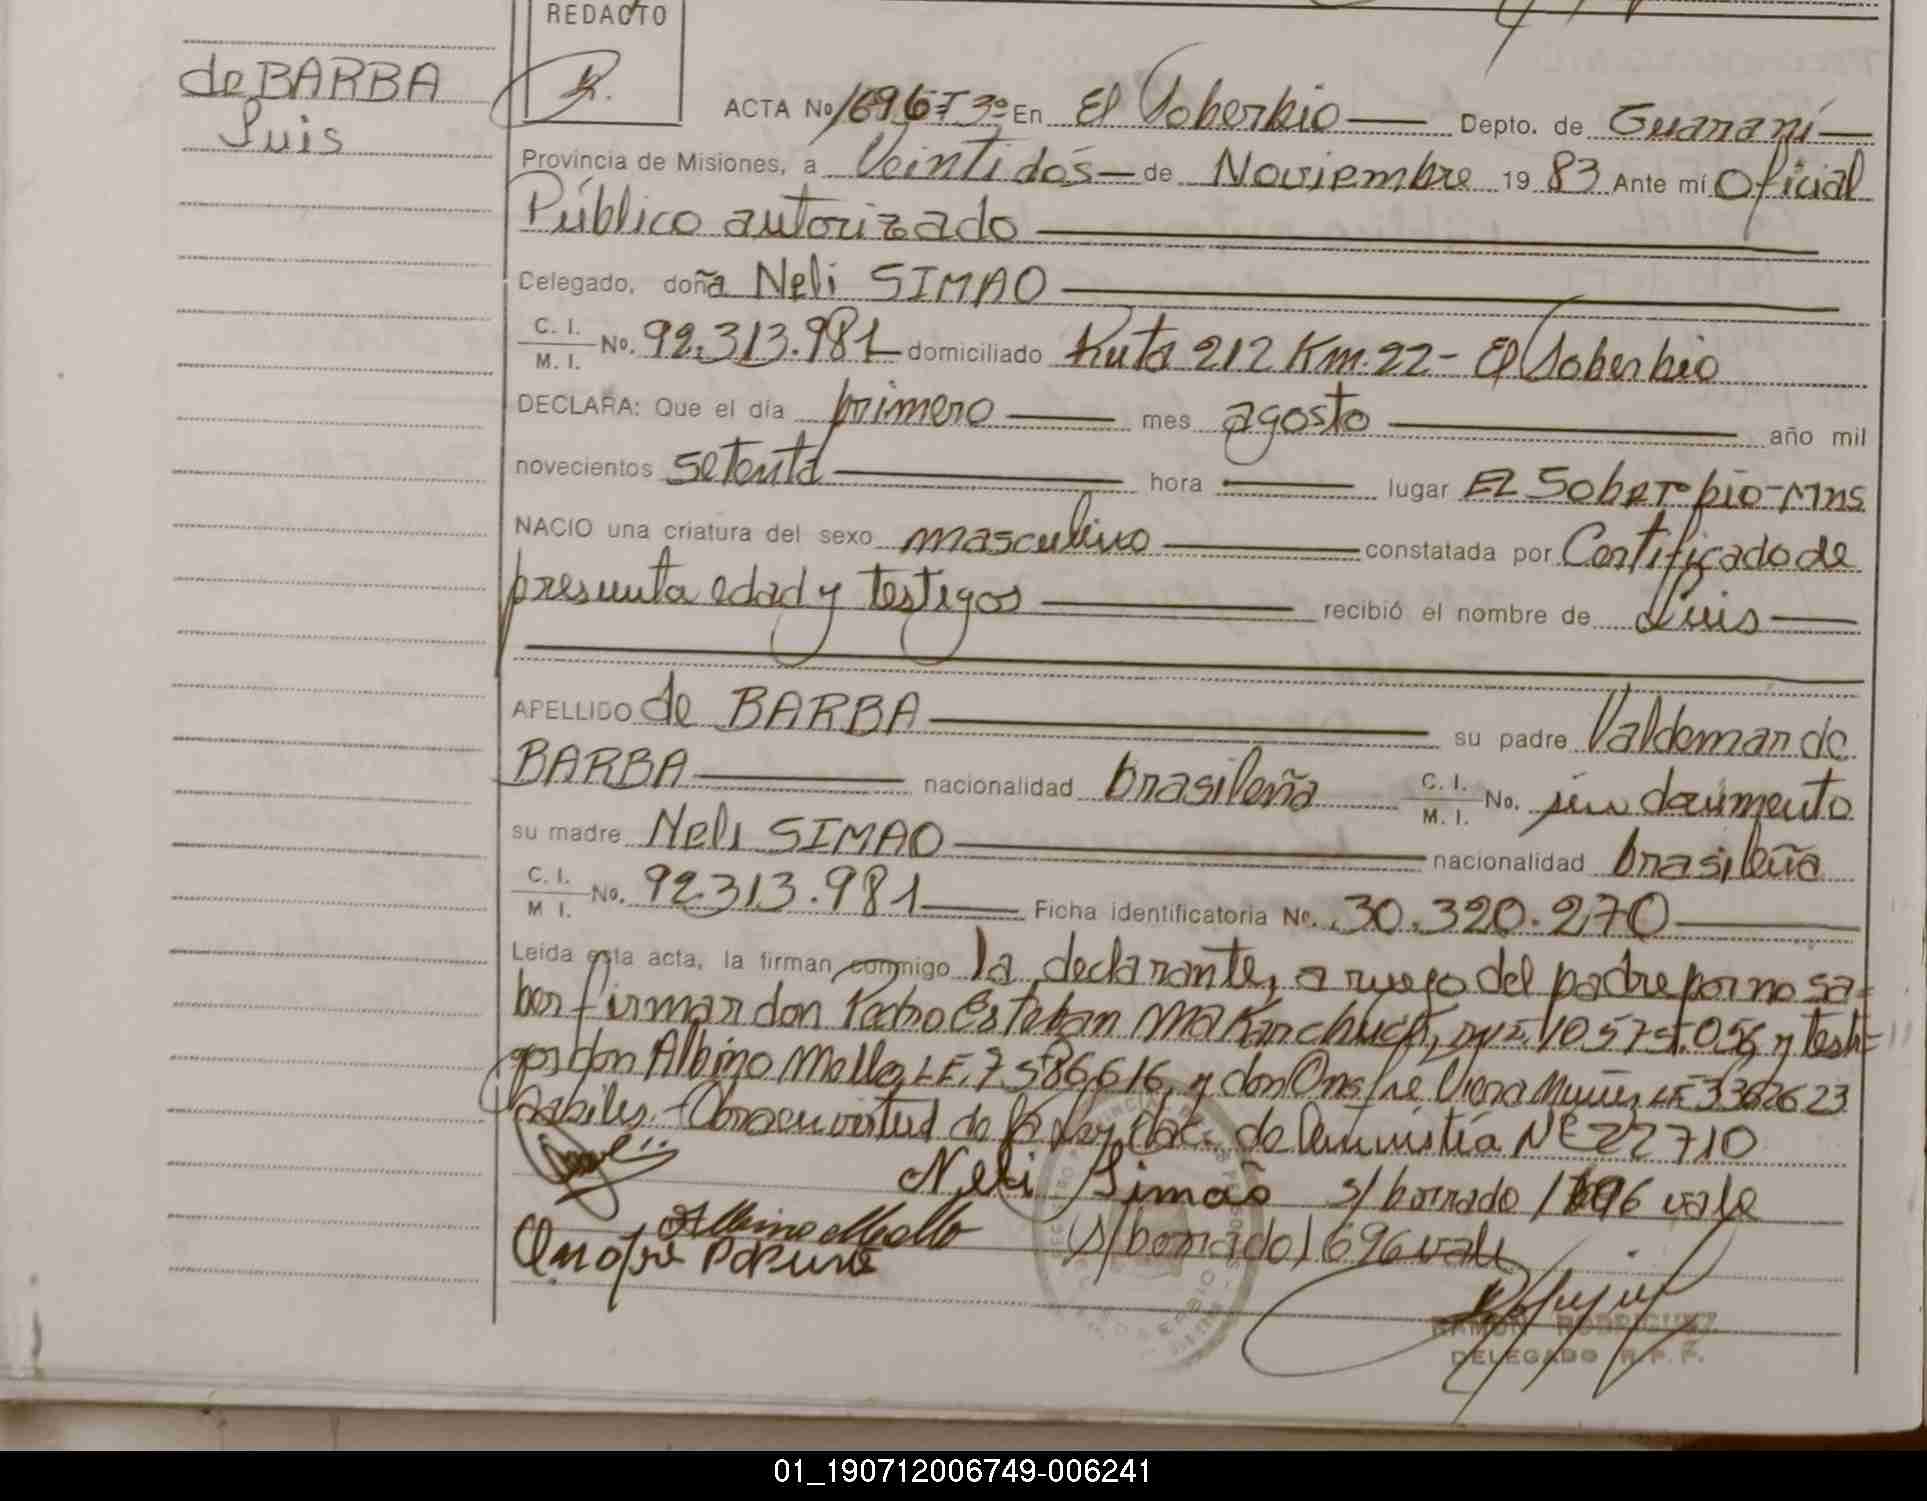 REDACTO
de BARBA
Luis
ACTA No 1696 T 3º En El Soberbio Depto. de Guaraní
Provincia de Misiones, a Veintidós de Noviembre 19 83 Ante mí Oficial
Público autorizado
Celegado, doña Neli SIMAO
C. I.
M. I. No. 92.313.981 domiciliado Ruta 212 Km. 22 - El Soberbio
DECLARA: Que el día primero mes agosto año mil
novecientos setenta hora lugar EL Soberbio-Mns
NACIO una criatura del sexo masculino constatada por Certificado de
presunta edad y testigos recibió el nombre de Luis
APELLIDO de BARBA su padre Valdemar de
BARBA nacionalidad brasileña C. I. M. I. No. sin documento
su madre Neli SIMAO nacionalidad brasileña
C. I.
M I. No. 92.313.981 Ficha identificatoria No. 30.320.270
Leída esta acta, la firman conmigo la declarante, a ruego del padre por no sa=
ber firmar don Pedro Esteban 10.575.056 y testi=
gos don Albino Mollo LE. 7.586.616, y don Onofre Viera LE 3362623
habiles.- Obra en virtud de la Ley de Amnistía Nº 22710
Neli Simão s/ borrado 1696 vale
Albino Mollo (s/ borrado) 1696 vale
Onofre
RAMON RODRIGUEZ
DELEGADO R.P.P.
01_190712006749-006241